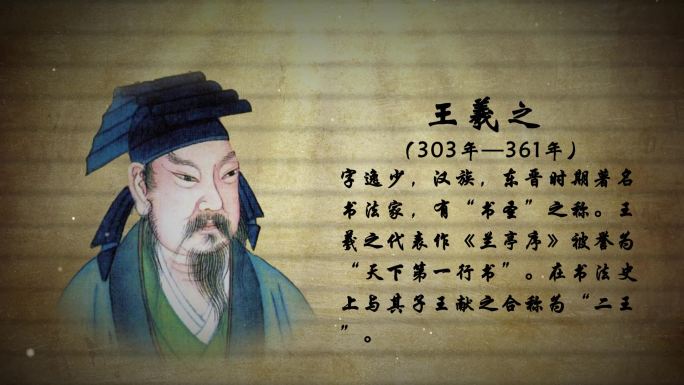 王羲之
（303年—361年）
字逸少，汉族，东晋时期著名
书法家，有“书圣”之称。王
羲之代表作《兰亭序》被誉为
“天下第一行书”。在书法史
上与其子王献之合称为“二王
”。